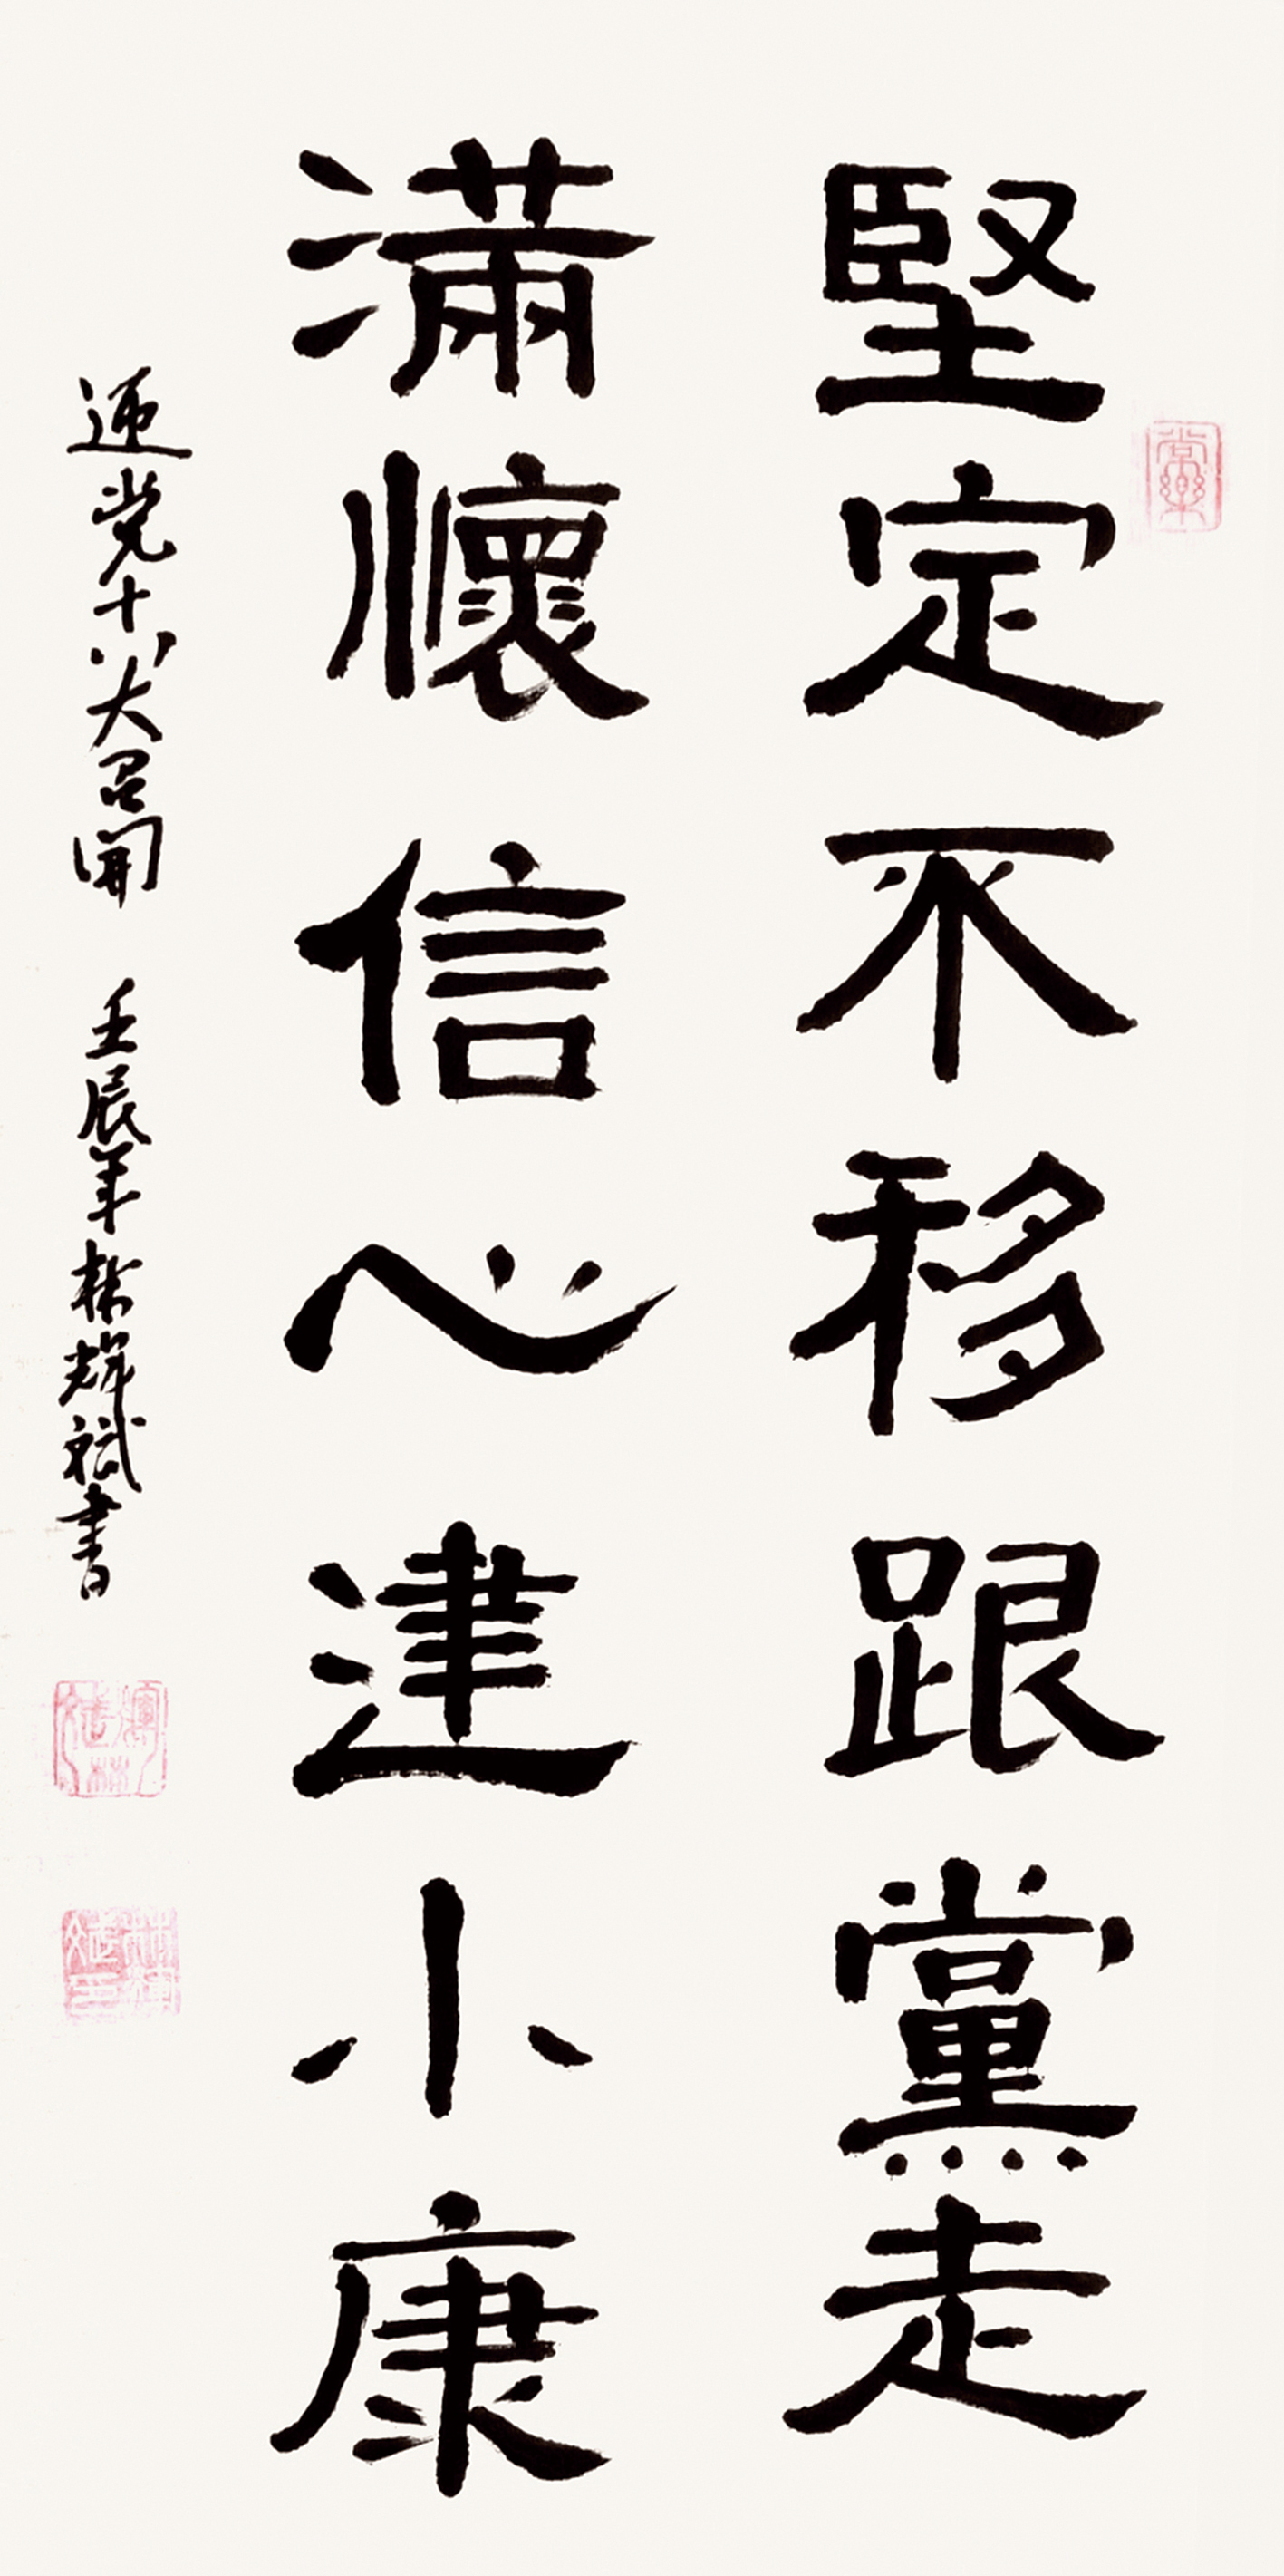 堅定不移跟黨走
滿懷信心建小康
迎党十八大召開 壬辰年林輝斌書
常樂